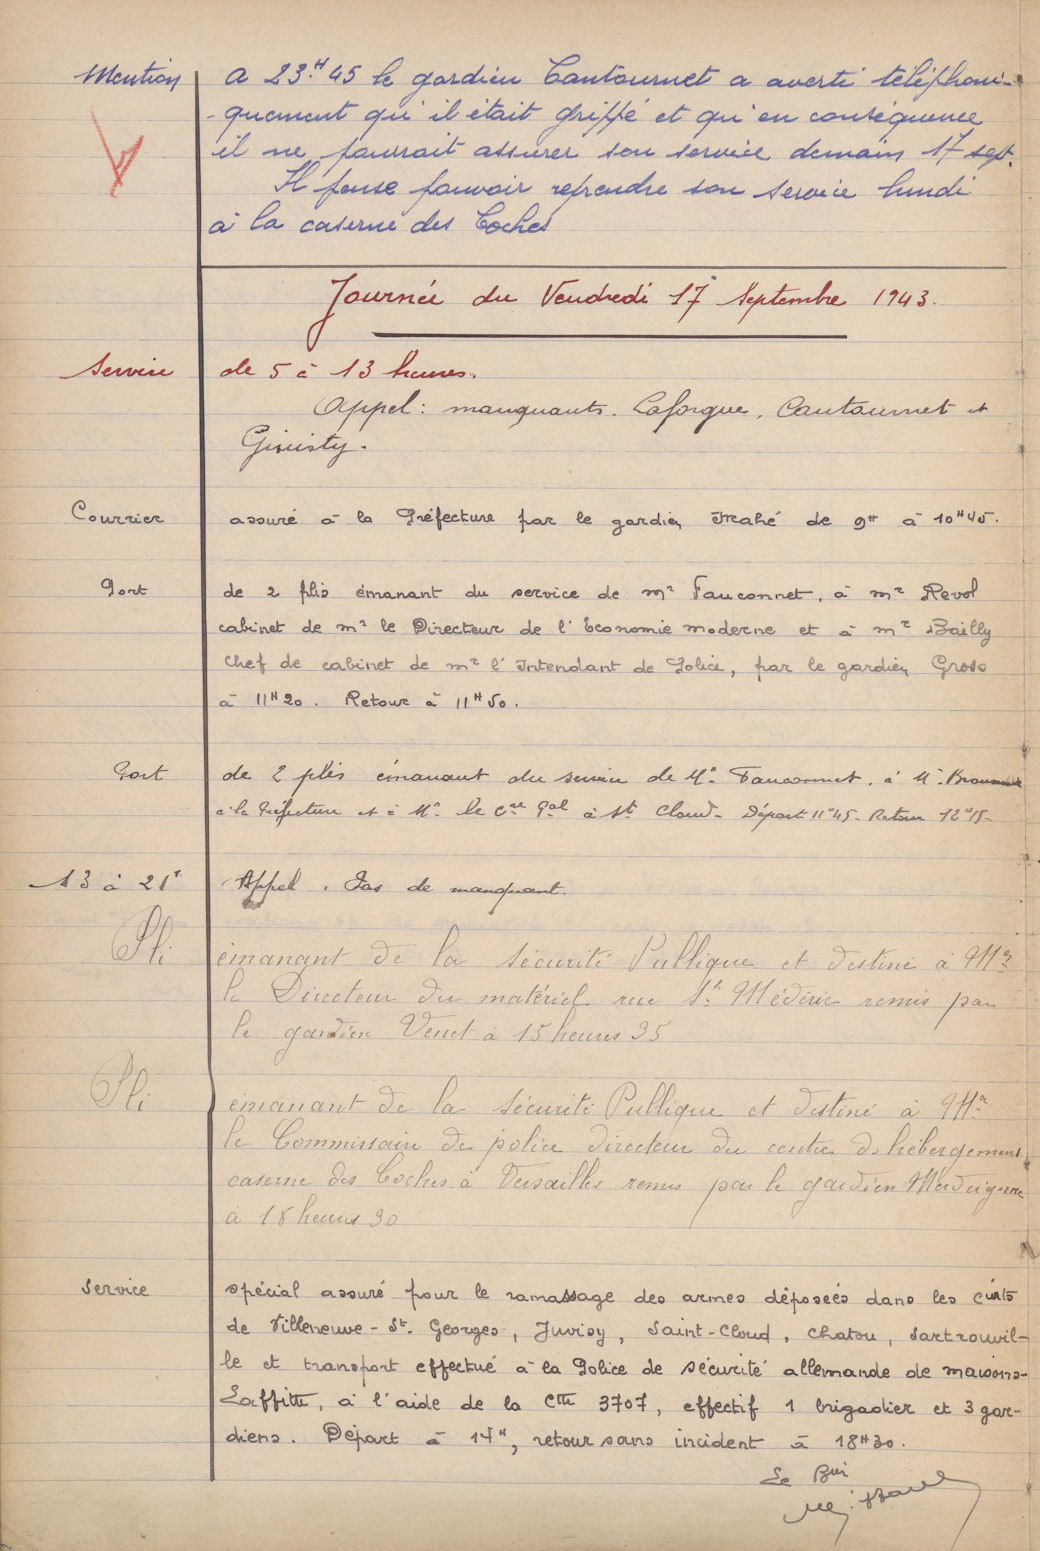 Mention
A 23.H 45 le gardien Cantournet a averti téléphoni-
-quement qu'il était grippé et qu'en conséquence
il ne pourrait assurer son service demain 17 sept.
Il pense pouvoir reprendre son service lundi
à la caserne des Coches
Journée du Vendredi 17 Septembre 1943.
Service de 5 à 13 heures.
Appel : manquants. Laforgue, Cantournet et
Ginisty.
Courrier assuré à la Préfecture par le gardien Mahé de 9H à 10H45.
Port de 2 plis émanant du service de Mr Fauconnet, à Mr Revol
cabinet de Mr le Directeur de l'Economie moderne et à Mr Bailly
chef de cabinet de Mr l'Intendant de Police, par le gardien Gross
à 11H20. Retour à 11H50.
Port de 2 plis émanant du service de Mr Fauconnet. à Mr
à la Préfecture et à Mr le Cre Gal à St Cloud - Départ 11H45 - Retour 12H15 -
13 à 21H Appel. Pas de manquant.
Pli émanant de la Sécurité Publique et destiné à Mr
le Directeur du matériel rue St Médéric remis par
le gardien Venet à 15 heures 35
Pli émanant de la Sécurité Publique et destiné à Mr
le Commissaire de police directeur du centre d'hébergement
caserne des Coches à Versailles remis par le gardien
à 18 heures 30
Service spécial assuré pour le ramassage des armes déposées dans les Ciats
de Villeneuve-St-Georges, Juvisy, Saint-Cloud, Chatou, Sartrouvil-
le et transport effectué à la Police de sécurité allemande de Maisons-
Laffitte, à l'aide de la Ctte 3707, effectif 1 brigadier et 3 gar-
diens. Départ à 14H, retour sans incident à 18H30.
Le Bier